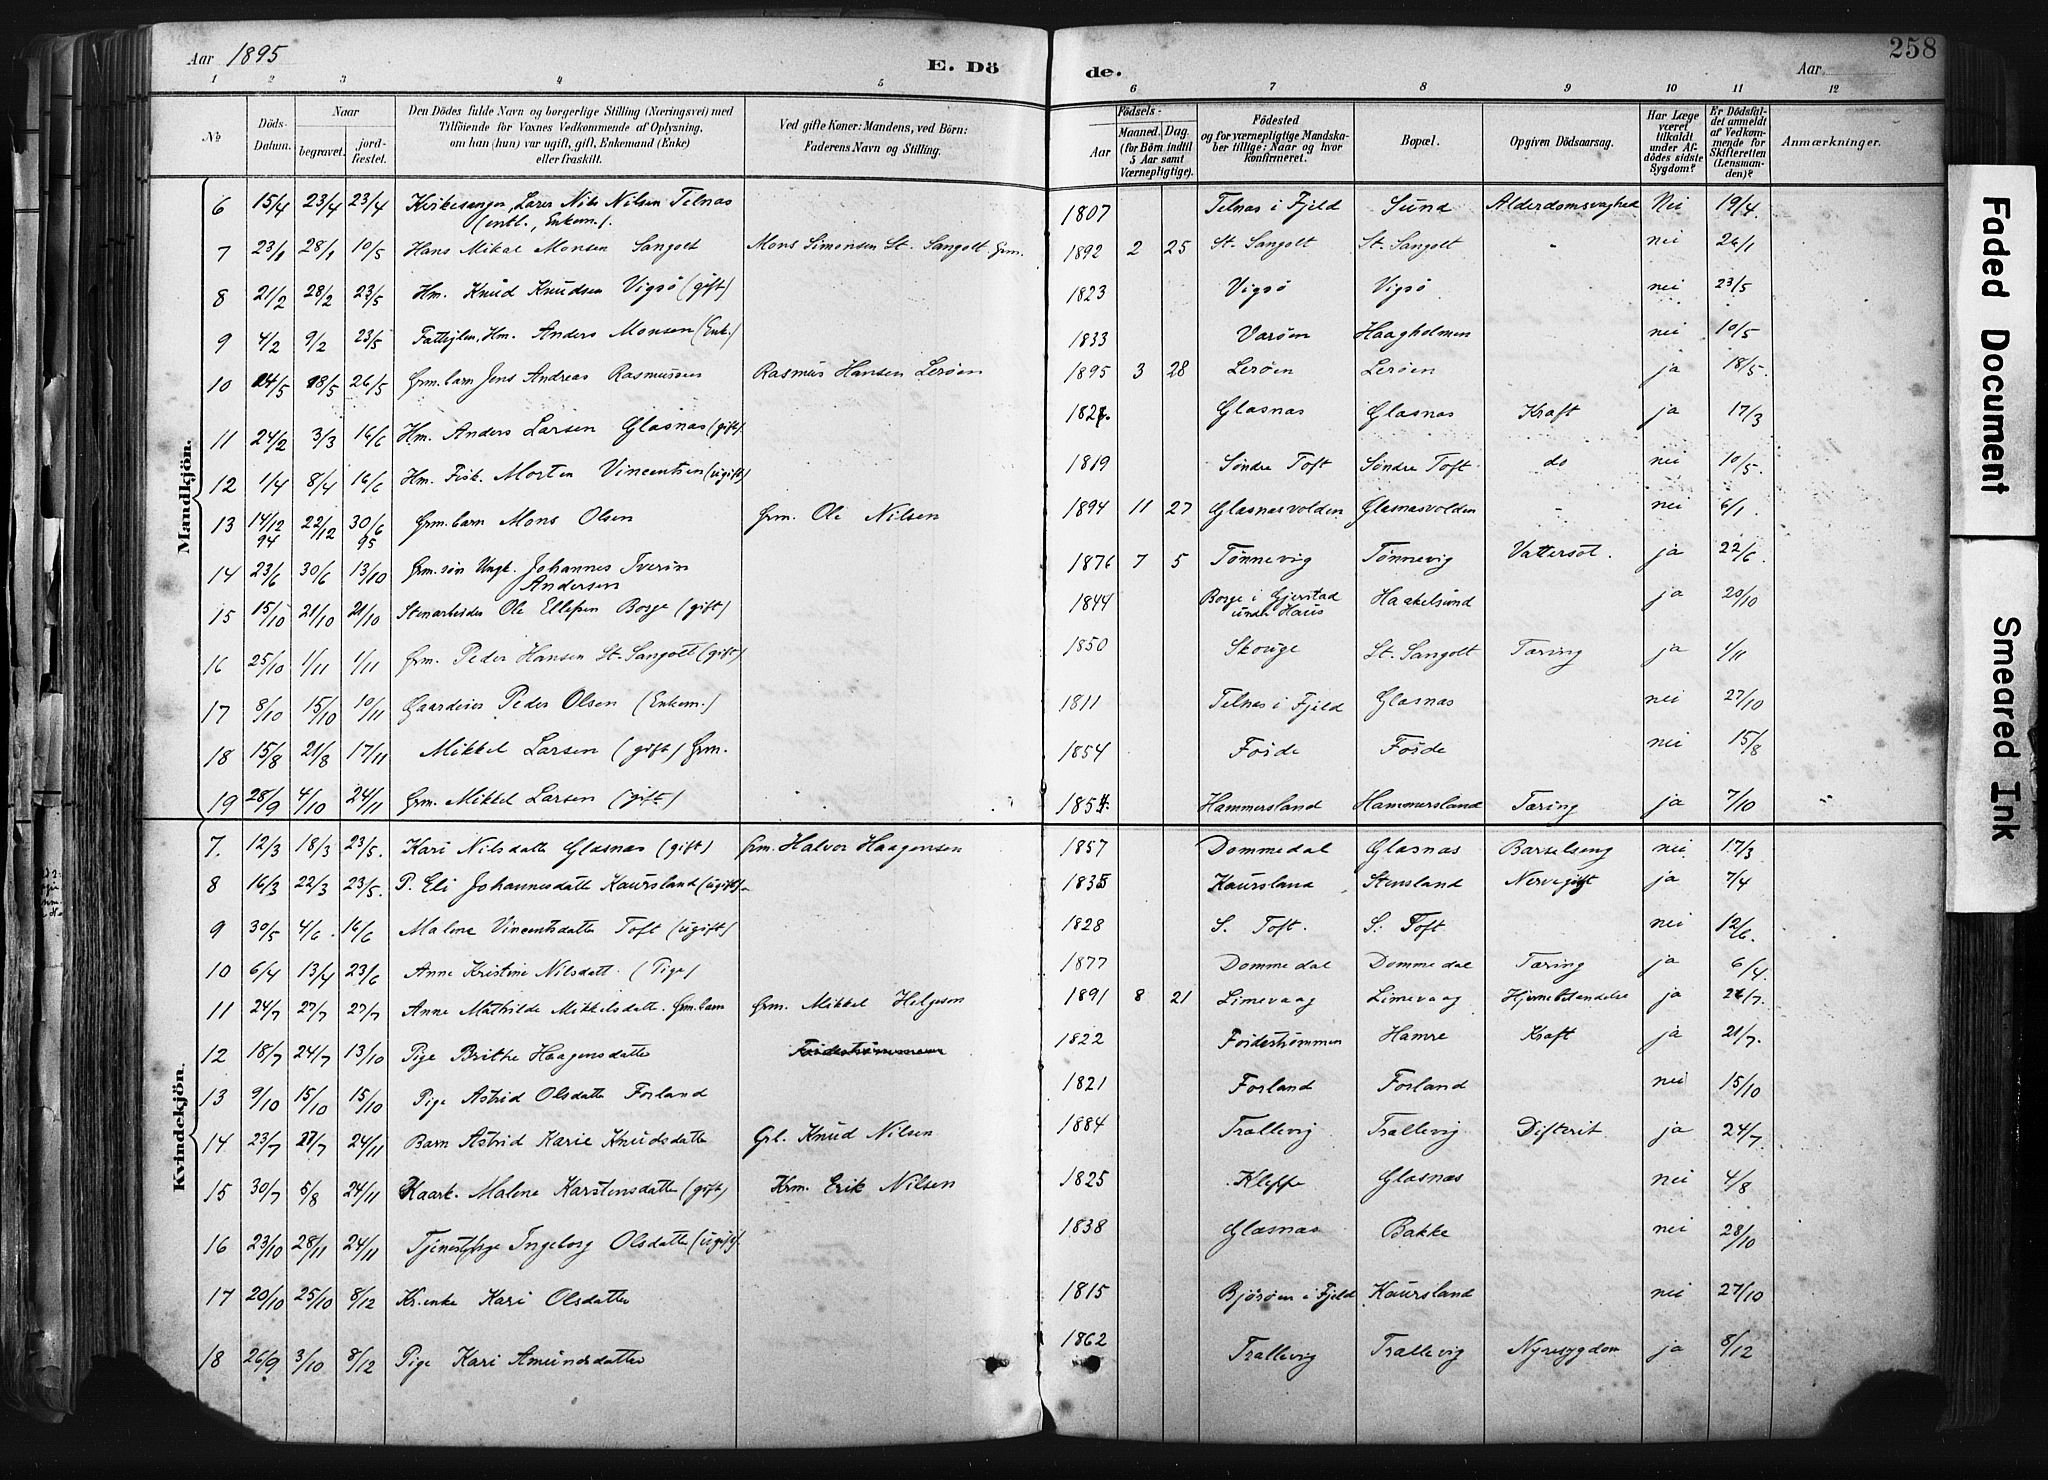 Aar 1895 E. Dö de. Aar 258
1 2 3 4 5 6 7 8 9 10 11 12
No Döds-Datum. Naar begravet. jordfæstet. Den Dödes fulde Navn og borgerlige Stilling (Næringsvei) med Tilföiende for Voxnes Vedkommende af Oplysning, om han (hun) var ugift, gift, Enkemand (Enke) eller fraskilt. Ved gifte Koner: Mandens, ved Börn: Faderens Navn og Stilling. Födsels- Aar Maaned. Dag. (for Börn indtil 5 Aar samt Værnepligtige). Födested og for værnepligtige Mandskaber tillige: Naar og hvor konfirmeret. Bopæl. Opgiven Dödsaarsag. Har Læge været tilkaldt under Afdødes sidste Sygdom? Er Dödsfaldet anmeldt af Vedkommende for Skifteretten (Lensmanden)? Anmærkninger.
Mandkjön.
6 15/4 23/4 23/4 Kirkesanger, Lærer Nils Nilsen Telnas 1807 Telnas i Fjeld Sund Alderdomsvaghed Nei 19/4
(entl., Enkem.).
7 23/1 28/1 10/5 Hans Mikal Monsen Sangolt Mons Simonsen St. Sangolt Grm. 1892 2 25 St. Sangolt St. Sangolt - nei 26/1
8 21/2 28/2 23/5 Hm. Knud Knudsen Vigsö (gift) 1823 Vigsö Vigsö nei 23/5
9 4/2 9/2 23/5 Hm. Anders Monsen (Enk.) 1833 Varöen Haagholmen nei 10/5
10 14/5 18/5 26/5 Grm. barn Jens Andreas Rasmussen Rasmus Hansen Leröen 1895 3 28 Leröen Leröen ja 18/5.
11 24/2 3/3 16/6 Hm. Anders Larsen Glasnas (gift) Glasnas Glasnas Kraft ja 17/3
12 1/4 8/4 16/6 Hm. Fisk. Morten Vincentsen (ugift) 1819 Söndre Toft Söndre Toft do nei 10/5.
13 14/12 94 22/12 30/6 95 Grm. barn Mons Olsen Grm. Ole Nilsen 1894 11 27 Glasnasvolden Glasnasvolden - nei 6/1.
14 23/6 30/6 13/10 Grm. søn Ungk. Johannes Iverin Andersen 1876 7 5 Tönnevig Tönnevig Vattersot. ja 22/6.
15 15/10 21/10 21/10 Stenarbeider Ole Ellefsen Borge (gift) 1844 Borge i Gjerstad under Haus Haakelsund ja 20/10
16 25/10 1/11 1/11 Grm. Peder Hansen St. Sangolt (gift) 1850 Skouge St. Sangolt Tæring ja 4/11
17 8/10 15/10 10/11 Gaardeier Peder Olsen (Enkem.) 1811 Telnas i Fjeld Glasnas nei 27/10
18 15/8 21/8 17/11 Mikkel Larsen (gift) Grm. 1854 Foide Foide nei 15/8
19 28/9 4/10 24/11 Grm. Mikkel Larsen (gift) 1854. Hammersland Hammersland Tæring ja 7/10
Kvindekjön.
7. 12/3 18/3 23/5. Kari Nilsdatter Glasnas (gift) Grm. Halvor Haagensen 1857 Dommedal Glasnas Barselseng nei 17/3
8 16/3 22/3 23/5. P. Eli Johannesdatt. Kaursland (ugift) 1835 Kaursland Stensland ja 7/4
9 30/5 4/6. 16/6 Malene Vincentsdatter Toft (ugift) 1828 S. Toft. S. Toft nei 12/6.
10 6/4 13/4 23/6 Anne Kristine Nilsdatt. (Pige) 1877 Dommedal Dommedal Tæring ja 6/4.
11 24/7 27/7 27/7 Anne Mathilde Mikkelsdatter. Grm. barn Grm. Mikkel Helgesen 1891 8 21 Limevaag Limevaag Hjernebetændelse ja 26/7.
12 18/7 24/7 13/10 Pige Brithe Haagensdatter Foidestrømmen 1822 Foidestrømmen Hamre Kraft ja 21/7.
13 9/10 15/10 15/10 Pige Astrid Olsdatter Forland 1821 Forland Forland nei 15/10
14 23/7 27/7 24/11 Barn Astrid Karie Knudsdatter Grl. Knud Nilsen 1884 Trallevig Trallevig Difterit ja 24/7.
15 30/7 5/8 24/11 Kaark. Malene Karstensdatter (gift) Krm. Erik Nilsen 1825 Kleppe Glasnas nei 4/8
16 23/10 28/11 24/11 Tjenestepige Ingeborg Olsdatter (ugift) 1838 Glasnas Bakke nei 28/10
17 20/10 25/10 8/12 Kr. enke Kari Olsdatter 1815 Björöen i Fjeld Kaursland nei 27/10
18 26/9 3/10 8/12 Pige Kari Amundsdatter 1862 Trallevig Trallevig Nyresygdom ja 8/12
Faded Document
Smeared Ink